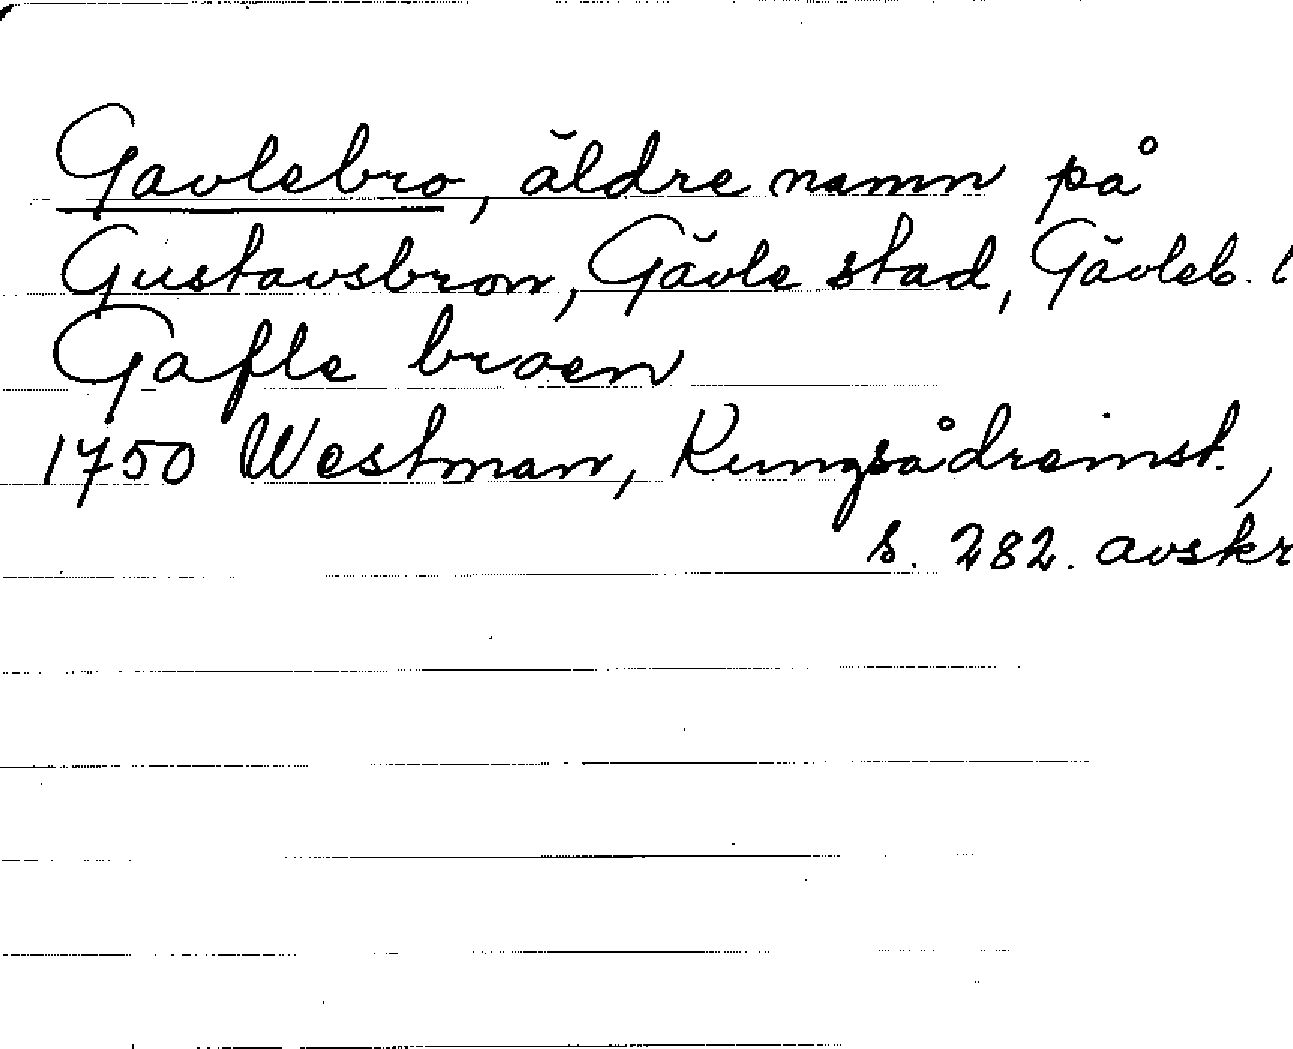 Gavlebro, äldre namn på
Gustavsbron, Gävle stad, Gävleb. l
Gafle broen
1750 Westman, Kungsådreinst.,
s. 282. avskr